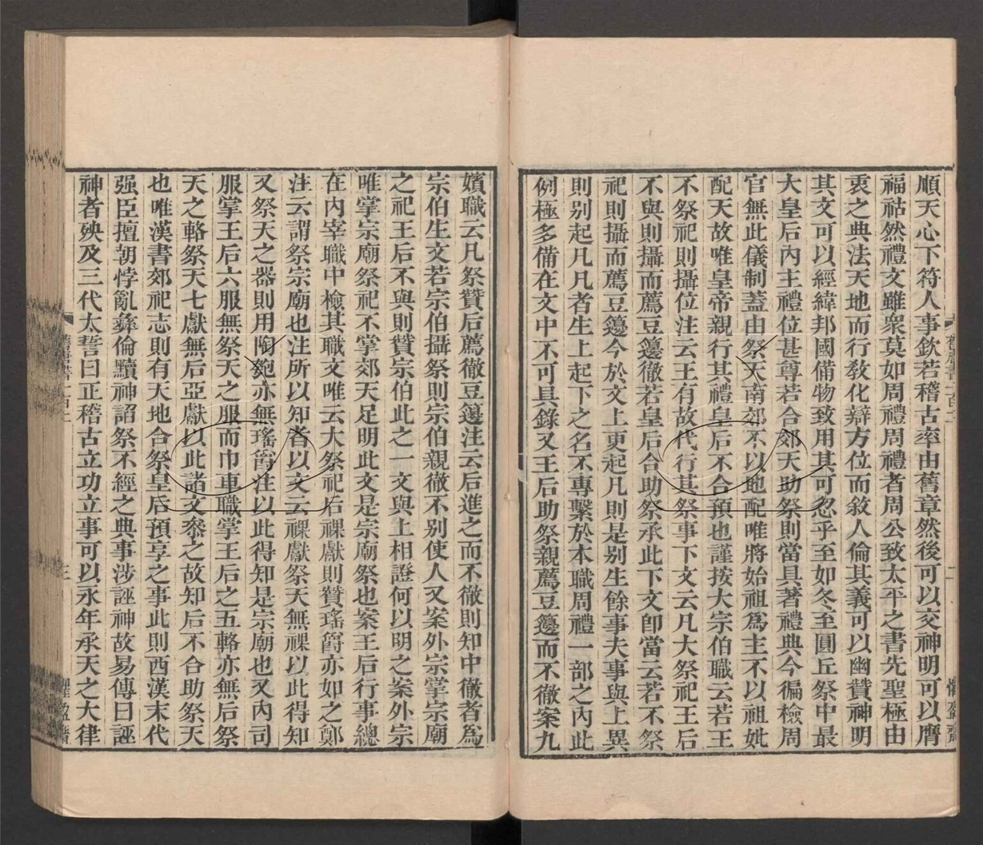 順天心下符人事欽若稽古率由舊章然後可以交神明可以膺
福祜然禮文雖衆莫如周禮周禮者周公致太平之書先聖極由
衷之典法天地而行敎化辯方位而敘人倫其義可以幽贊神明
其文可以經緯邦國備物致用其可忽乎至如冬至圓丘祭中最
大皇后內主禮位甚尊若合郊天助祭則當具著禮典今徧檢周
官無此儀制蓋由祭天南郊不以地配唯將始祖爲主不以祖妣
配天故唯皇帝親行其禮皇后不合預也謹按大宗伯職云若王
不祭祀則攝位注云王有故代行其祭事下文云凡大祭祀王后
不與則攝而薦豆籩徹若皇后合助祭承此下文卽當云若不祭
祀則攝而薦豆籩今於文上更起凡則是别生餘事夫事與上異
則别起凡凡者生上起下之名不專繫於本職周禮一部之內此
例極多備在文中不可具錄又王后助祭親薦豆籩而不徹案九
嬪職云凡祭贊后薦徹豆籩注云后進之而不徹則知中徹者爲
宗伯生文若宗伯攝祭則宗伯親徹不别使人又案外宗掌宗廟
之祀王后不與則贊宗伯此之一文與上相證何以明之案外宗
唯掌宗廟祭祀不掌郊天足明此文是宗廟祭也案王后行事總
在內宰職中檢其職文唯云大祭祀后祼獻則贊瑤爵亦如之鄭
注云謂祭宗廟也注所以知者以文云祼獻祭天無祼以此得知
又祭天之器則用陶匏亦無瑤爵注以此得知是宗廟也又內司
服掌王后六服無祭天之服而巾車職掌王后之五輅亦無后祭
天之輅祭天七獻無后亞獻以此諸文參之故知后不合助祭天
也唯漢書郊祀志則有天地合祭皇后預享之事此則西漢末代
强臣擅朝悖亂彝倫黷神諂祭不經之典事涉誣神故易傳曰誣
神者殃及三代太誓曰正稽古立功立事可以永年承天之大律